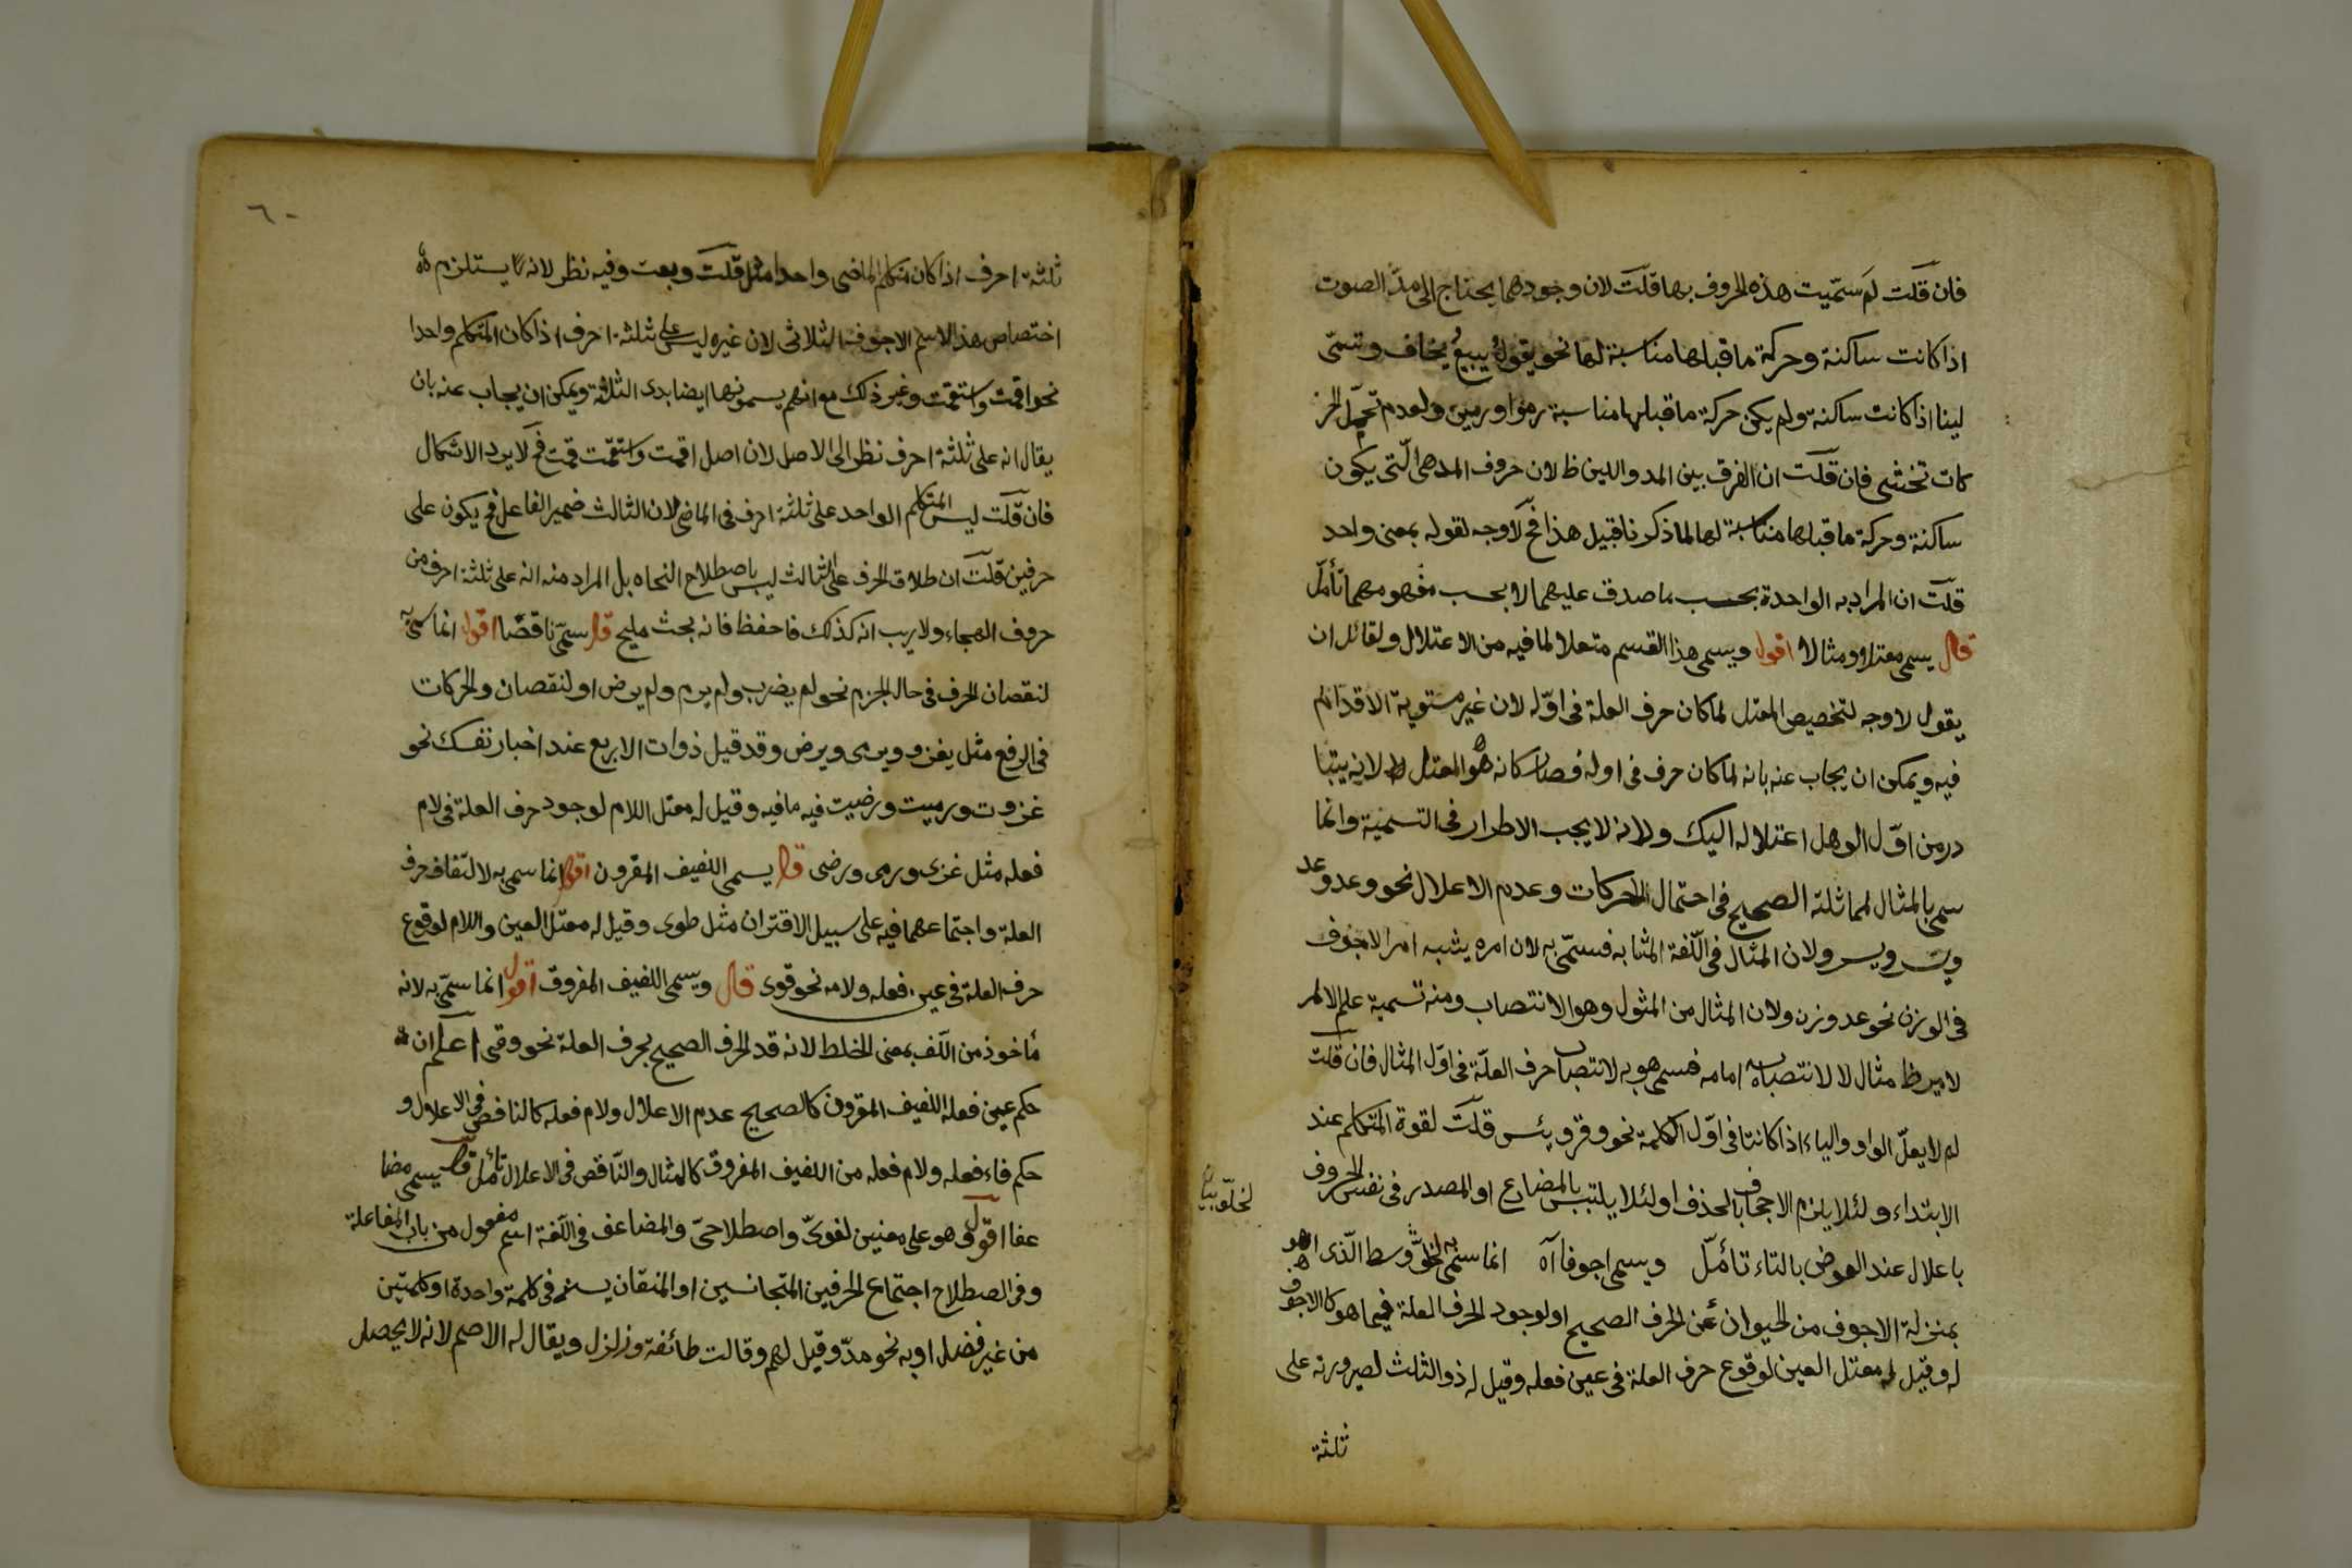 فان قلت لم سمّيت هذه الحروف بها قلت لان وجودهما يحتاج الى مدّ الصوت
اذا كانت ساكنة وحركة ما قبلها مناسبة لها نحو يقول يبيع يخاف وتسمّى
لينا اذا كانت ساكنة ولم يكن حركة ما قبلها مناسبة رموا ورمين ولعدم تحمّل الحر
كات تخشى فان قلت ان الفرق بين المد واللين ظ لان حروف المد هى الّتى يكون
ساكنة وحركة ما قبلها مناسبة لها لما ذكرنا قبيل هذا فح لا وجه لقوله بمعنى واحد
قلت ان المراد به الواحدة بحسب ما صدق عليهما لا بحسب مفهومهما تأمّل
قال يسمى معتلا ومثالا اقول ويسمى هذا القسم متعلا لما فيه من الاعتلال ولقائل ان
يقول لا وجه لتخصيص المعتل لما كان حرف العلة فى اوّله لان غير مستوية الاقدام
فيه ويمكن ان يجاب عنه بانه لما كان حرف فى اوله فصار كانه هو المعتل لانه يتبا
در من اوّل الوهل اعتلاله اليك ولانه لا يجب الاطرار فى التسمية وانما
سمى بالمثال لمماثلة الصحيح فى احتمال الحركات وعدم الاعلال نحو وعد وعد
ويسر ولان المثال فى اللّغة المشابه فسمّى به لان امره يشبه امر الاجوف
فى الوزن نحو عد وزن ولان المثال من المثول وهو الانتصاب ومنه تسمية علم الامر
لامير ظ مثال لا لانتصابه امامه فسمى هو به لانتصاب حرف العلّة فى اوّل المثال فان قلت
لم لا يعلّ الواو والياء اذا كانتا فى اوّل الكلمة نحو وقر ويئس قلت لقوة المتكلم عند
الابتداء ولئلا يلزم الاجحاف بالحذف او لئلا يلتبس بالمضارع او المصدر فى نفس الحروف
باعلال عند العوض بالتاء تأمّل ويسمى اجوفا آه انما سمى به لخلوّ وسط الّذى هو
بمنزلة الاجوف من الحيوان عن الحرف الصحيح او لوجود الحرف العلة فيما هو كالاجوف
له وقيل له معتل العين لوقوع حرف العلة فى عين فعله وقيل له ذو الثلث لصيرورته على
ثلثة
٦٠
ثلثة احرف اذا كان متكلم الماضى واحدا مثل قلت وبعت وفيه نظر لانه لا يستلزم
اختصاص هذا الاسم الاجوف الثلاثى لان غيره ليس على ثلثة احرف اذا كان المتكلم واحدا
نحو اقمت واستقمت وغير ذلك مع انهم يسمونها ايضا بذى الثلاثة ويمكن ان يجاب عنه بان
يقال انه على ثلثة احرف نظر الى الاصل لان اصل اقمت واستقمت قمت فح لا يرد الاشكال
فان قلت ليس المتكلم الواحد على ثلثة احرف فى الماضى لان الثالث ضمير الفاعل فح يكون على
حرفين قلت ان طلاق الحرف على الثالث ليس باصطلاح النحاه بل المراد منه انه على ثلثة احرف من
حروف الهجاء ولا ريب انه كذلك فاحفظ فانه بحث مليح قال سمّى ناقصا اقول انما سمّى به
لنقصان الحرف فى حال الجزم نحو لم يضرب ولم يرم ولم يرض او لنقصان والحركات
فى الرفع مثل يغزو ويرمى ويرض وقد قيل ذوات الاربع عند اخبار نفسك نحو
غزوت ورميت ورضيت فيه ما فيه وقيل له معتل اللام لوجود حرف العلة فى لام
فعله مثل غزى ورمى ورضى قال يسمى اللفيف المقرون اقول انما سمى به لالتفاف حرف
العلة واجتماعهما فيه على سبيل الاقتران مثل طوى وقيل له معتل العين واللام لوقوع
حرف العلة فى عين فعله ولامه نحو قوى قال ويسمى اللفيف المفروق اقول انما سمّى به لانه
مأخوذ من اللّف بمعنى الخلط لانه قد الحرف الصحيح بحرف العلة نحو وقى اعلم ان
حكم عين فعله اللفيف المقرون كالصحيح عدم الاعلال ولام فعله كالناقص فى الاعلال و
حكم فاء فعله ولام فعله من اللفيف المفروق كالمثال والنّاقص فى الاعلال تأمل قال يسمى مضا
عفا اقول هو على معنيين لغوىّ واصطلاحىّ والمضاعف فى اللّغة اسم مفعول من باب المفاعلة
وفى الصطلاح اجتماع الحرفين المتجانسين او المتقاربين فى كلمة واحدة او كلمتين
من غير فضل او به نحو مدّ وقيل لهم وقالت طائفة وزلزل ويقال له الاصم لانه لا يحصل